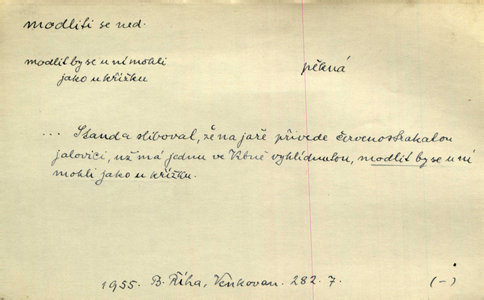 modliti se ned.
modlit by se u ní mohli pěkná
jako u křížku
... Standa sliboval, že na jaře přivede červenostrakatou
jalovici, už má jednu ve Lbně vyhlídnutou, modlit by se u ní
mohli jako u křížku.
1955. B. Říha, Venkovan. 282. 7. (-)